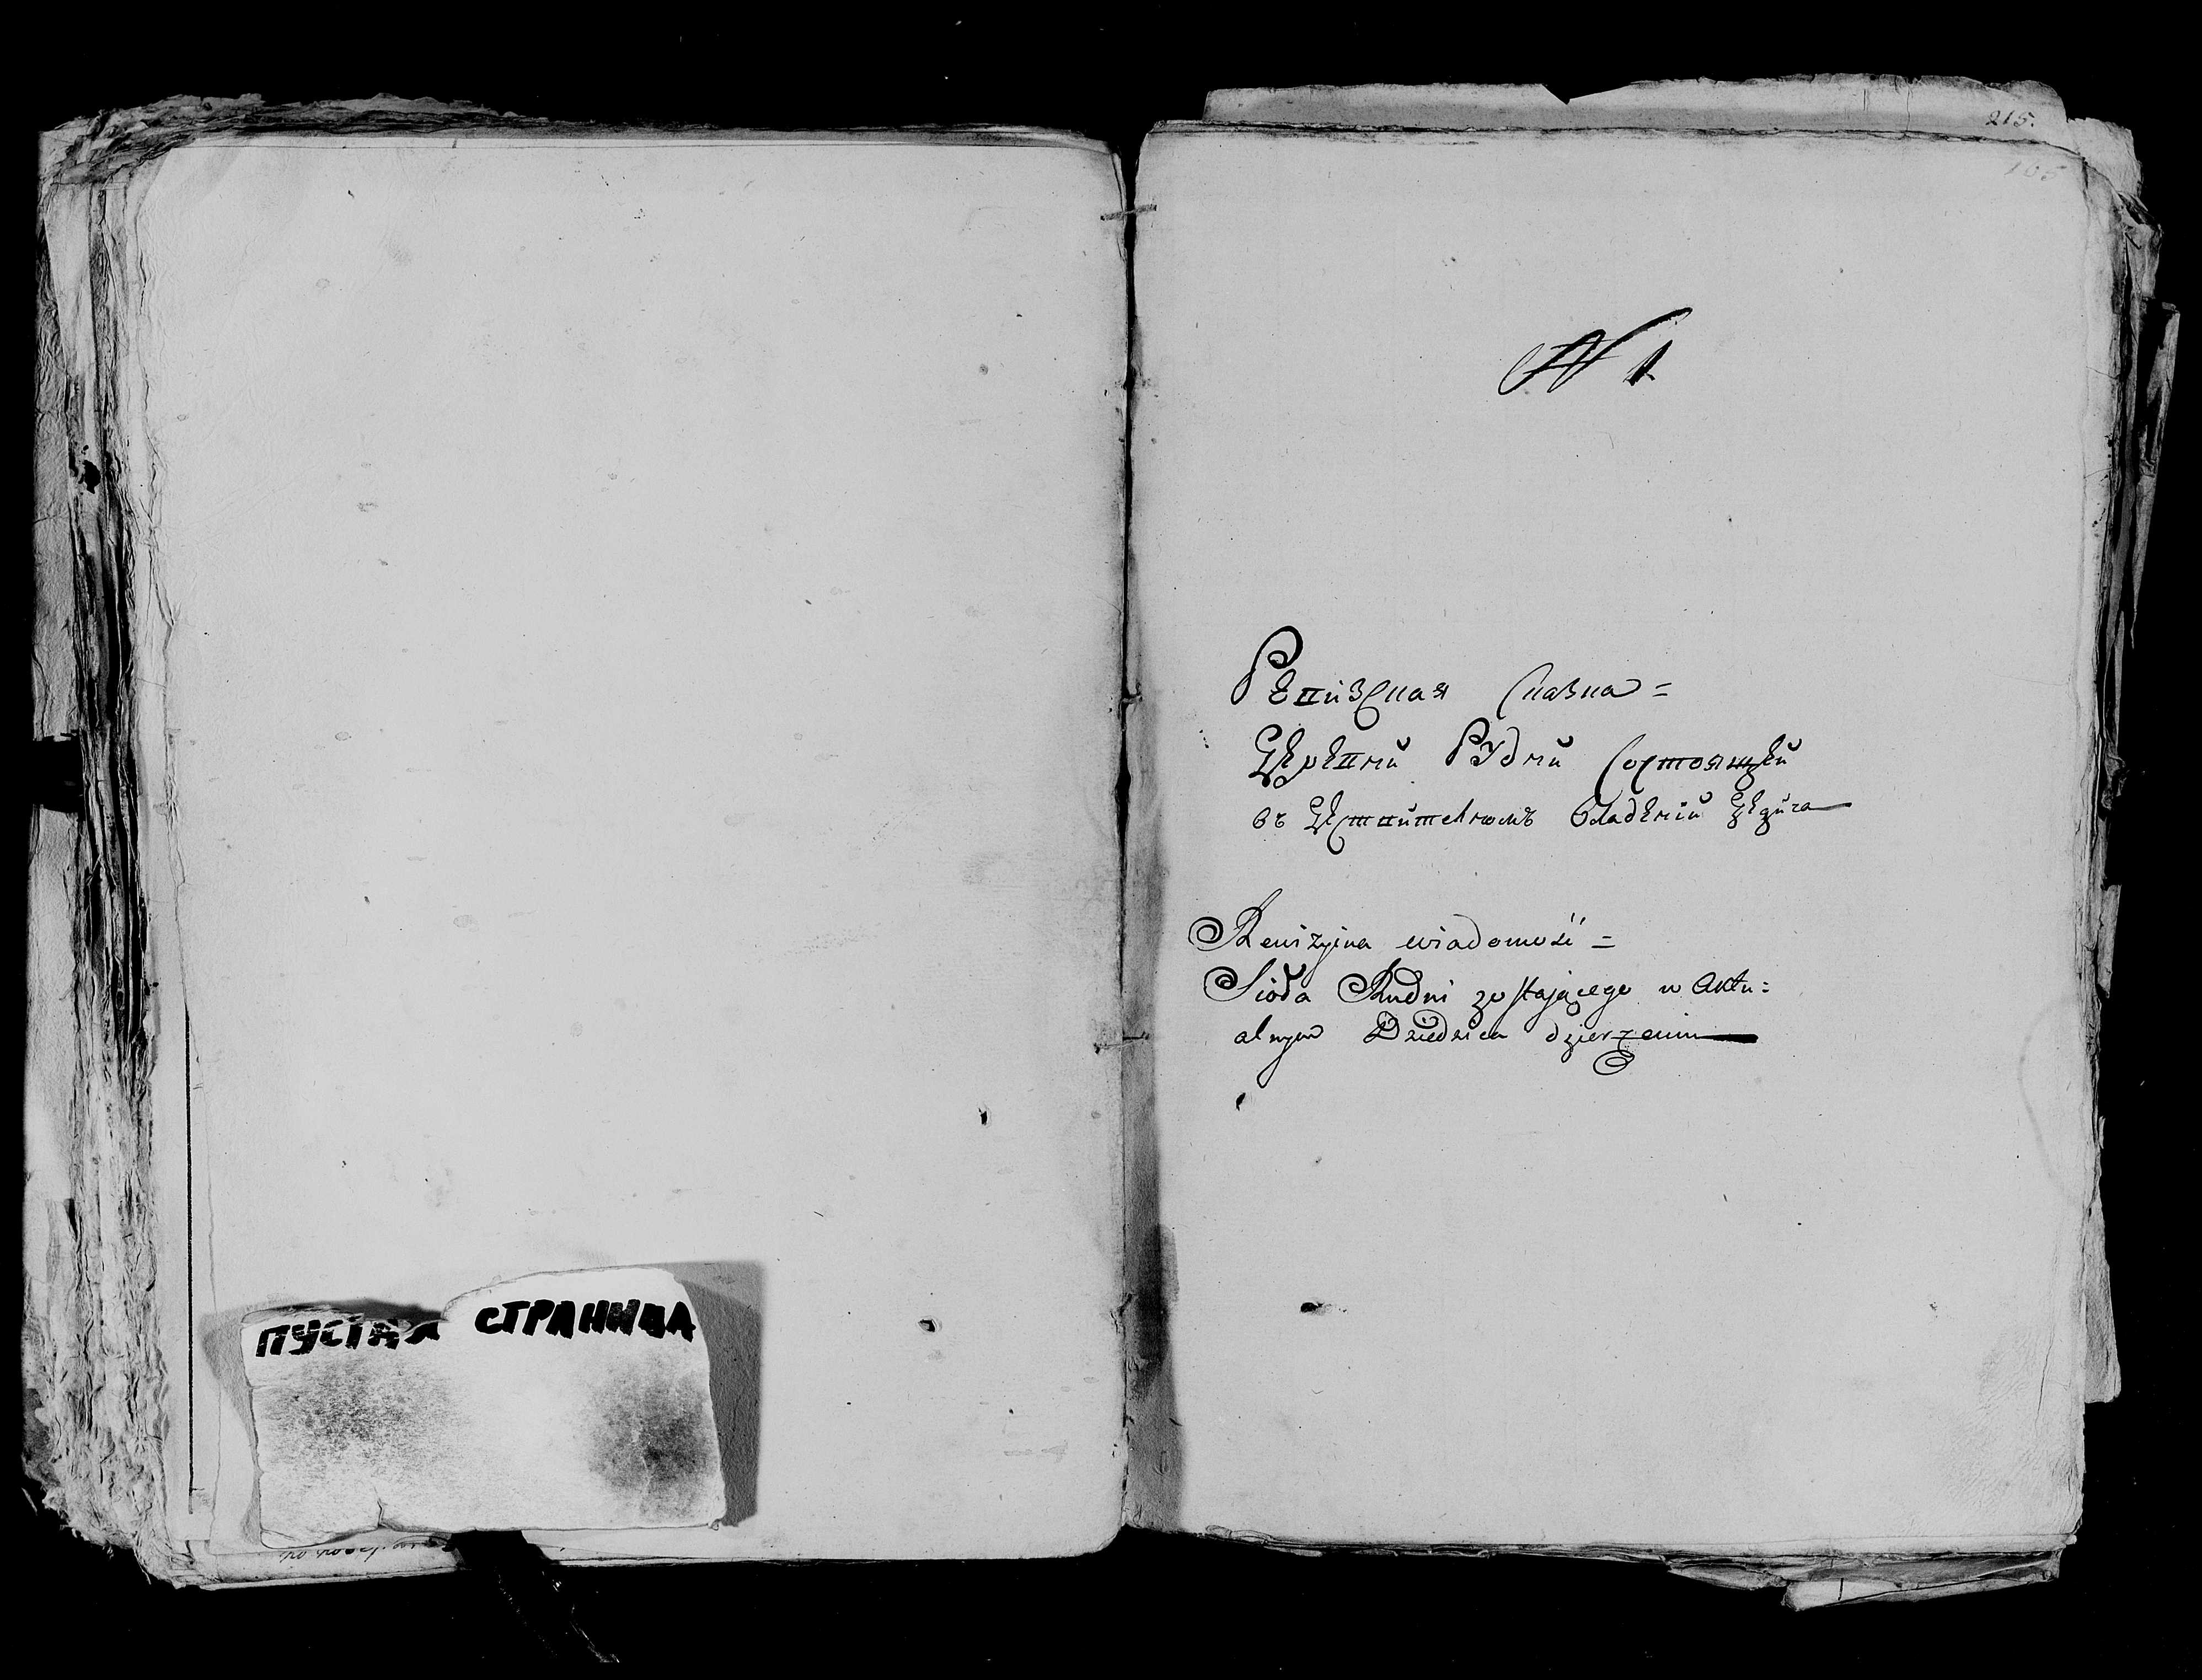 ПУСТАЯ СТРАНИЦА
215.
106
N 1
Ревизская сказка =
Деревни Рудни состоящей
въ действителномъ владении Дедича
Rewizyina wiadomość =
Sioła Rudni zostającego w Aktu=
alnym Dziedzica dzierzeniu